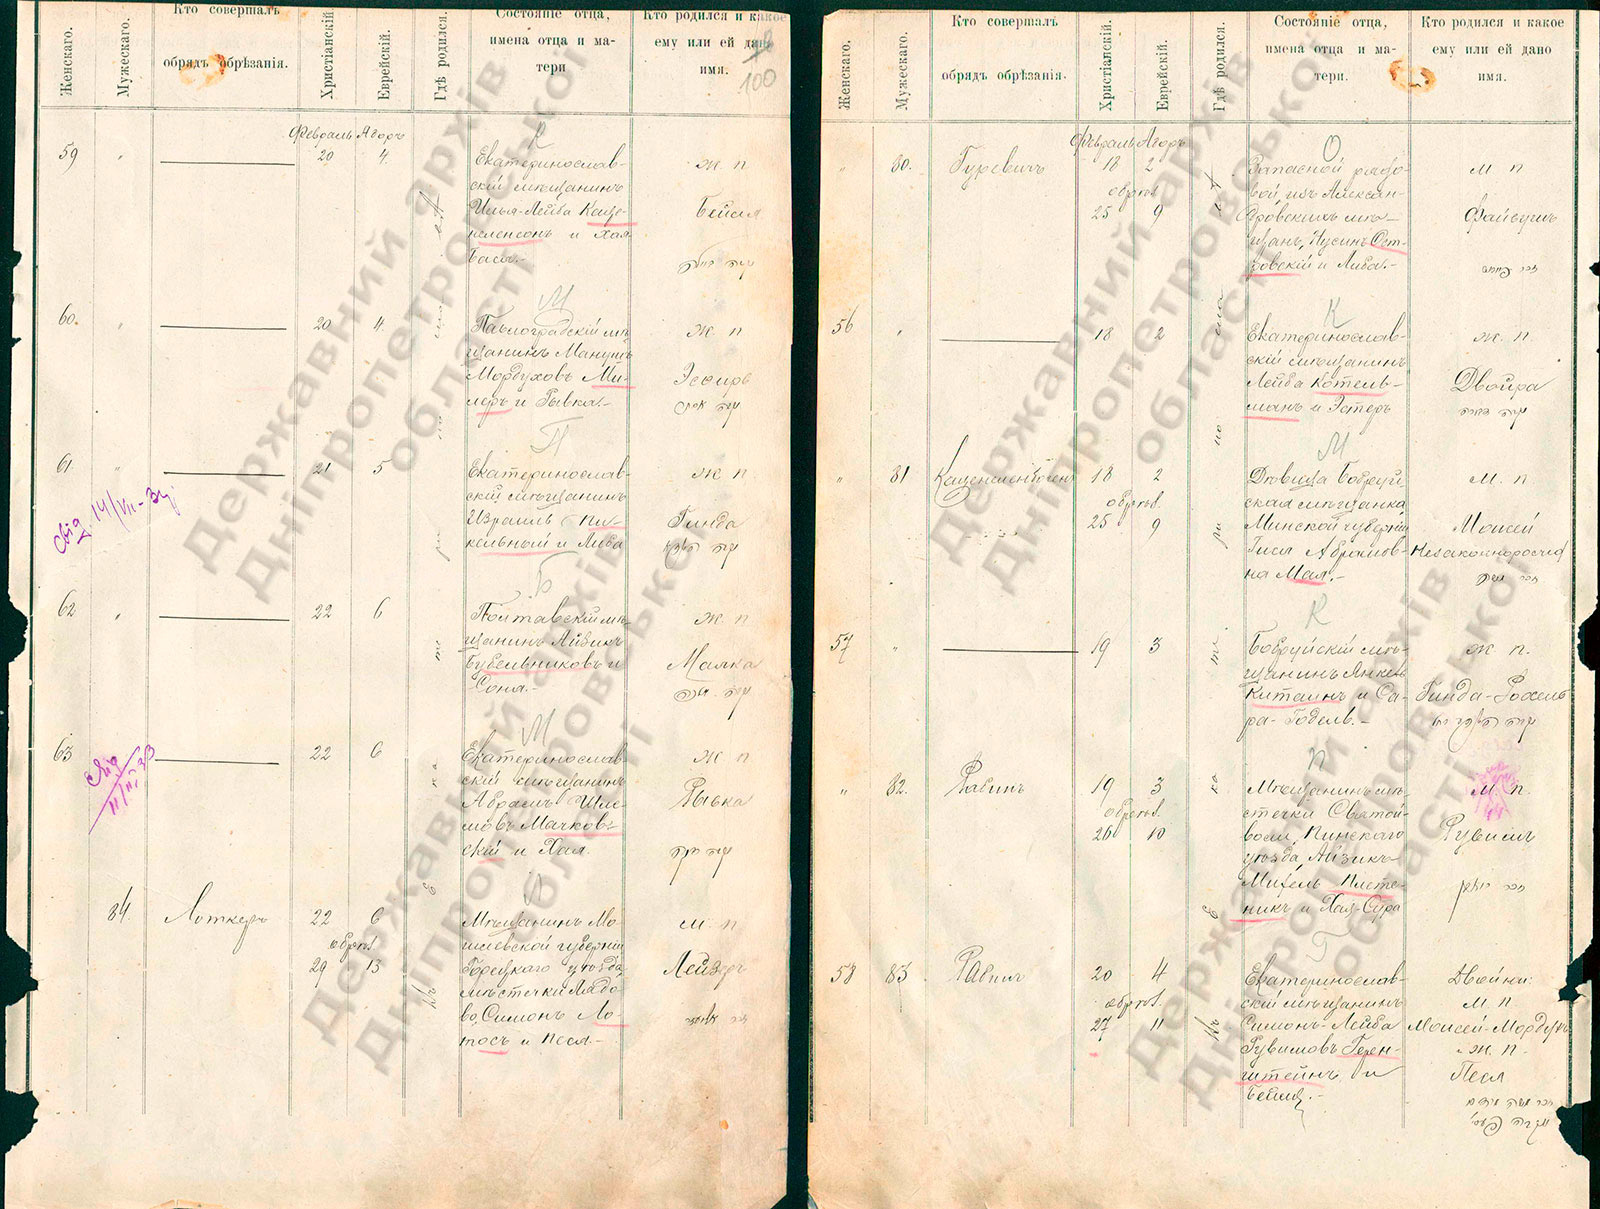 Женскаго.
Мужескаго.
Кто совершалъ
обрядъ обрѣзанія.
Христіанскій.
Еврейскій.
Гдѣ родился.
Состояніе отца,
имена отца и ма-
тери
Кто родился и какое
ему или ей дано
имя.
100
Февраль Адоръ
59 " 20 4.
К
Екатеринослав-
скій мѣщанинъ
Илья-Лейба Каце-
неленсонъ и Хая
Бася.-
Ж п
Бейля
60. " 20 4.
М
Павлоградскій мѣ-
щанинъ Мануш
Мордуховъ Ми-
леръ и Рывка.-
Ж п
Эсфирь
61. " 21 5
П
Екатеринослав-
скій мѣщанинъ
Израиль Пи-
кельный и Либа
Ж п
Гинда
свід. 14/VII-34.
62 " 22 6
Б
Полтавскій мѣ-
щанинъ Айзикъ
Бубельниковъ и
Соня.-
Ж п
Малка
63 22 6
М
Екатеринослав-
скій мѣщанинъ
Абрамъ Шле-
мовъ Мачков-
скій и Хая.
Ж п
Рывка
84. Лоткеръ 22 6
обрѣз.
29 13
Л
Мѣщанинъ Мо-
гилевской губерніи
Горецкаго уѣзда,
мѣстечки Лядо-
во, Симонъ Ло-
тосъ и Песя.-
М. п
Лейзеръ
Въ Екатеринославѣ
Женскаго.
Мужескаго.
Кто совершалъ
обрядъ обрѣзанія.
Христіанскій.
Еврейскій.
Гдѣ родился.
Состояніе отца,
имена отца и ма-
тери.
Кто родился и какое
ему или ей дано
имя.
Февраль Адоръ
" 80. Гуревичъ 18 2
обрѣз.
25 9
О
Запасной рядо-
вой, изъ Алексан-
дровскихъ мѣ-
щанъ, Нусинъ Ост-
ровскій и Либа.-
М п
Файвушъ
56 " 18 2
К
Екатеринослав-
скій мѣщанинъ
Лейба Котель-
манъ и Эстеръ
Ж. п.
Двойра
" 81 18 2
обрѣз.
25 9
М
Дѣвица Бобруй-
ская мѣщанка
Минской губерніи
Гися Абрамов-
на Мая.-
М. п.
Моисей
57 " 19 3
К
Бобруйскій мѣ-
щанинъ Янкель
Китаинъ и Са-
ра-Годель.-
Ж п.
Гинда-Рохель
" 82. Равинъ 19 3
обрѣз.
26 10
П
Мѣщанинъ мѣ-
стечки Святой-
воли, Пинскаго
уѣзда, Айзикъ
Михель Плете-
никъ и Хая-Сура
М. п.
Рувимъ
58 83 Равинъ 20 4
обрѣз.
27 11
Г
Екатеринослав-
скій мѣщанинъ
Симонъ-Лейба
Рувимовъ Герен-
штейнъ и
Бейля.-
Двойни:
М. п.
Моисей-Мордухъ
Ж. п.
Песя
Въ Екатеринославѣ
Державний архів
Дніпропетровської
області
Державний архів
Дніпропетровської
області
Державний архів
Дніпропетровської
області
Державний архів
Дніпропетровської
області